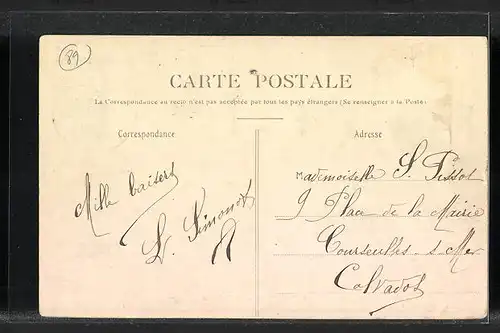 89
CARTE POSTALE
La Correspondance au recto n'est pas acceptée par tous les pays étrangers (Se renseigner à la Poste)
Correspondance
Adresse
Mille baisers
L. Simonot
Mademoiselle S. Tissot
9 Place de la Mairie
Courseulles s Mer
Calvados